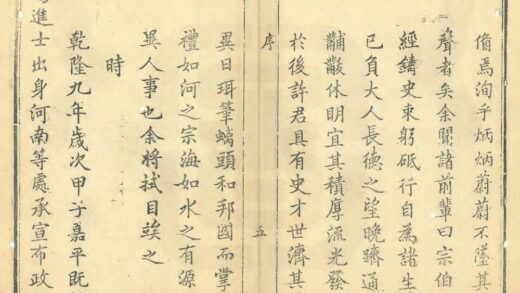 偹焉洵乎炳炳蔚蔚不墜其
聲者矣余聞諸前輩曰宗伯
經鑄史束躬砥行自為諸生
已負大人長德之望晚躋通
黼黻休明宜其積厚流光發
於後許君具有史才世濟其
序 五
異日珥筆螭頭和邦國而掌
禮如河之宗海如水之有源
異人事也余將拭目竢之
時
乾隆九年歲次甲子嘉平既
進士出身河南等處承宣布政